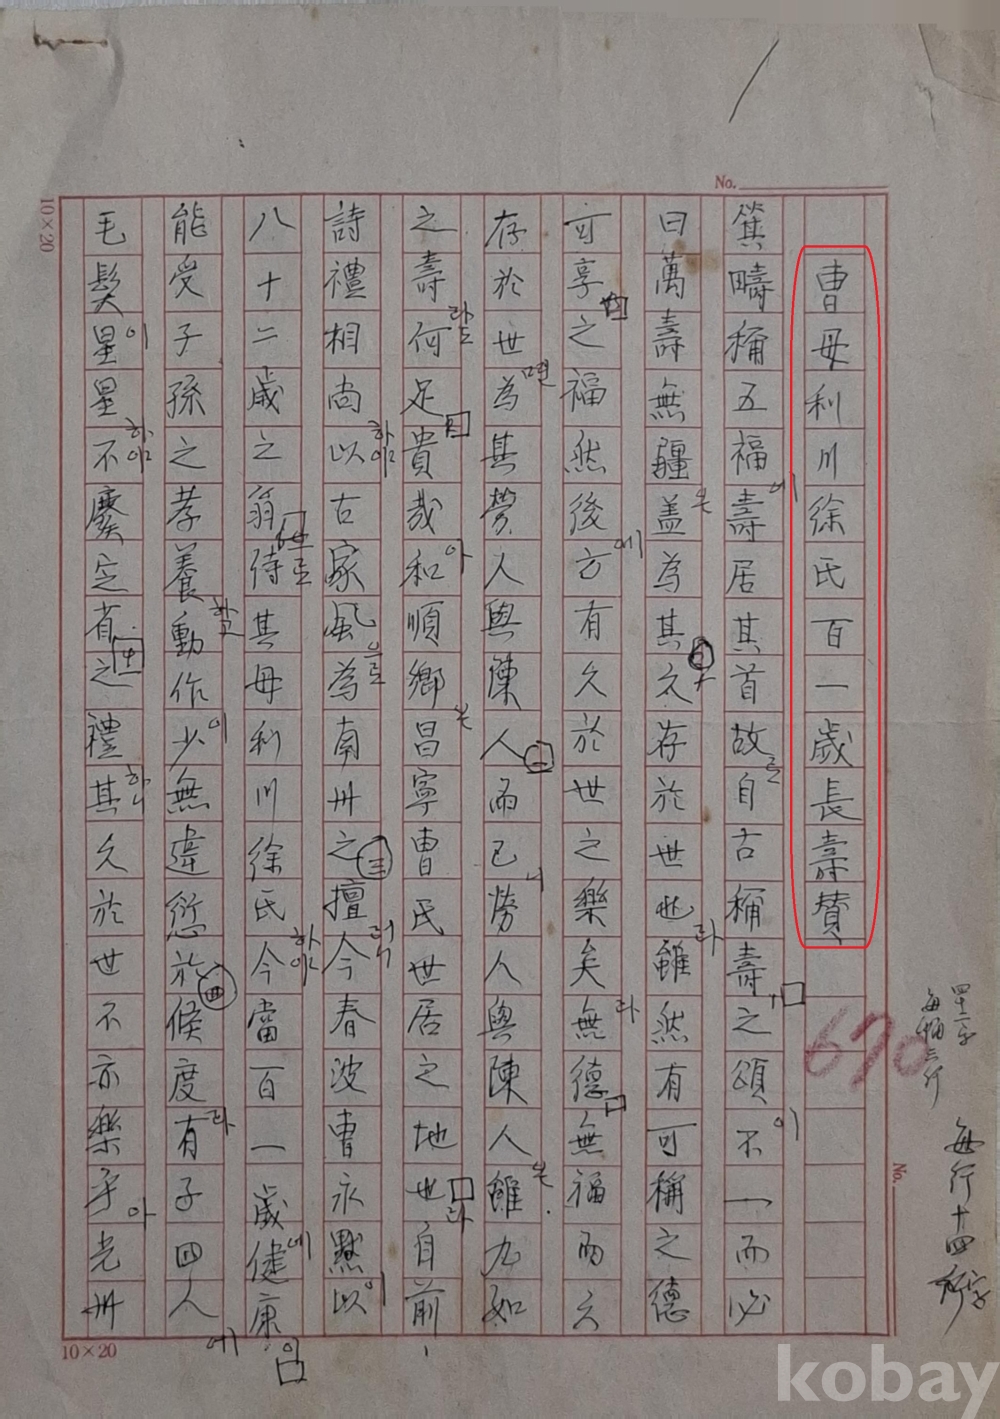 No.
曺母利川徐氏百一歲長壽贊
箕疇稱五福壽居其首故自古稱壽之頌不一而必
에 로 이
曰萬壽無疆盖為其久存於世也雖然有可稱之德
은 라
可享之福然後方有久於世之樂矣無德無福而久
에 라
存於世為其勞人與陳人而已勞人與陳人雖九如
면 二 니 은
之壽何足貴哉和順鄉昌寧曺氏世居之地也自前
라도 아 은 라
詩禮相尚以古家風為南州之擅今春波曺永黙以
하야 으로 三 러니 이
八十二歲之翁侍其母利川徐氏今當百一歲健康
으로 하야 에
能受子孫之孝養動作少無違愆於候度有子四人
하고 이 四 라 에
毛髮星星不廢定省之禮其久於世不亦樂乎光州
이 하야 하니 아
670
每行十四字
No.
10×20
10×20
kobay